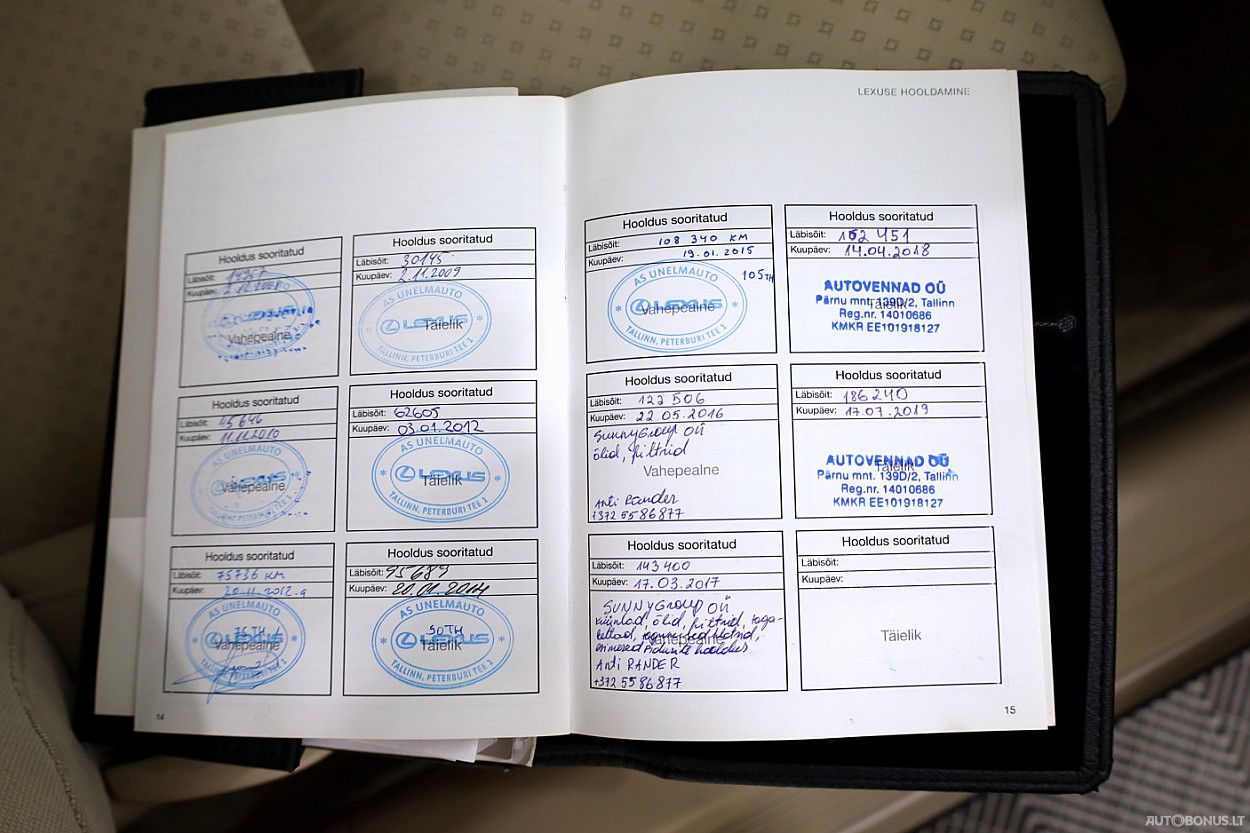 Hooldus sooritatud
Läbisõit:
Kuupäev:
Vahepealne
Hooldus sooritatud
Läbisõit: 30145
Kuupäev: 2.11.2009
AS UNELMAUTO
LEXUS
Täielik
TALLINN, PETERBURI TEE 1
Hooldus sooritatud
Läbisõit: 45646
Kuupäev: 11.11.2010
AS UNELMAUTO
LEXUS
Vahepealne
TALLINN, PETERBURI TEE 1
Hooldus sooritatud
Läbisõit: 62605
Kuupäev: 03.01.2012
AS UNELMAUTO
LEXUS
Täielik
TALLINN, PETERBURI TEE 1
Hooldus sooritatud
Läbisõit: 75736 KM
Kuupäev: 20.11.2012.a
AS UNELMAUTO
75TH
LEXUS
Vahepealne
TALLINN, PETERBURI TEE 1
Hooldus sooritatud
Läbisõit: 95689
Kuupäev: 20.01.2014
AS UNELMAUTO
90TH
LEXUS
Täielik
TALLINN, PETERBURI TEE 1
14
LEXUSE HOOLDAMINE
Hooldus sooritatud
Läbisõit: 108 340 KM
Kuupäev: 19.01.2015
105TH
AS UNELMAUTO
LEXUS
Vahepealne
TALLINN, PETERBURI TEE 1
Hooldus sooritatud
Läbisõit: 162 451
Kuupäev: 14.04.2018
AUTOVENNAD OÜ
Täielik
Pärnu mnt. 139D/2, Tallinn
Reg.nr. 14010686
KMKR EE101918127
Hooldus sooritatud
Läbisõit: 122 506
Kuupäev: 22.05.2016
SunnyGroup OÜ
õlid, filtrid
Vahepealne
Anti Rander
+372 5586877
Hooldus sooritatud
Läbisõit: 186240
Kuupäev: 17.07.2019
AUTOVENNAD OÜ
Täielik
Pärnu mnt. 139D/2, Tallinn
Reg.nr. 14010686
KMKR EE101918127
Hooldus sooritatud
Läbisõit: 143400
Kuupäev: 17.03.2017
SUNNYGroup OÜ
küünlad, õlid, filtrid, taga-
Vahepealne
esimesed pidurite hooldus
Anti RANDER
+372 5586877
Hooldus sooritatud
Läbisõit:
Kuupäev:
Täielik
15
AUTOBONUS.LT